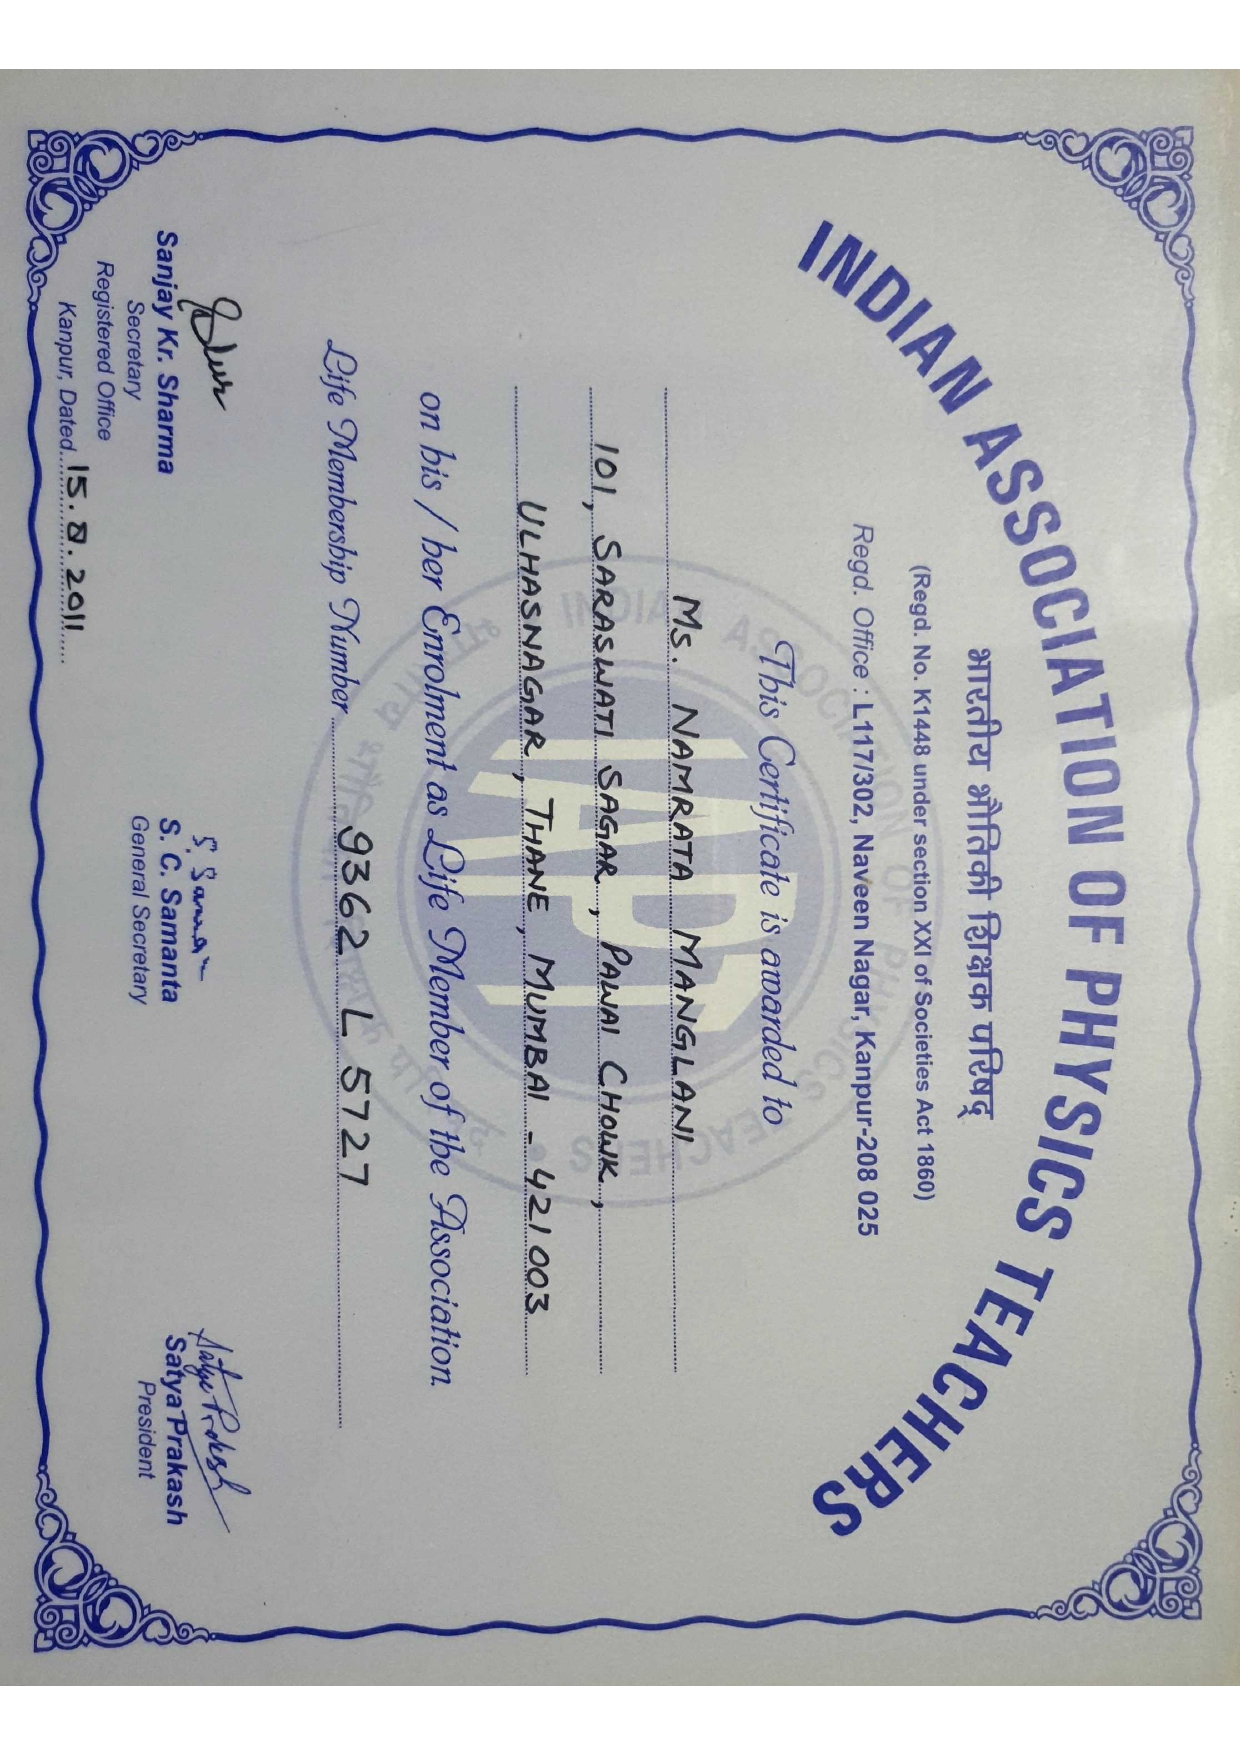 INDIAN ASSOCIATION OF PHYSICS TEACHERS
भारतीय भौतिकी शिक्षक परिषद्
(Regd. No. K1448 under section XXI of Societies Act 1860)
Regd. Office : L117/302, Naveen Nagar, Kanpur-208 025
This Certificate is awarded to
MS. NAMRATA MANGLANI
101, SARASWATI SAGAR, PAWAI CHOWK,
ULHASNAGAR, THANE, MUMBAI - 421003
on his / her Enrolment as Life Member of the Association.
Life Membership Number 9362 L 5727
Sanjay Kr. Sharma
Secretary
Registered Office
Kanpur, Dated 15.8.2011
S. Samanta
S. C. Samanta
General Secretary
Satya Prakash
Satya Prakash
President
INDIAN ASSOCIATION OF PHYSICS TEACHERS